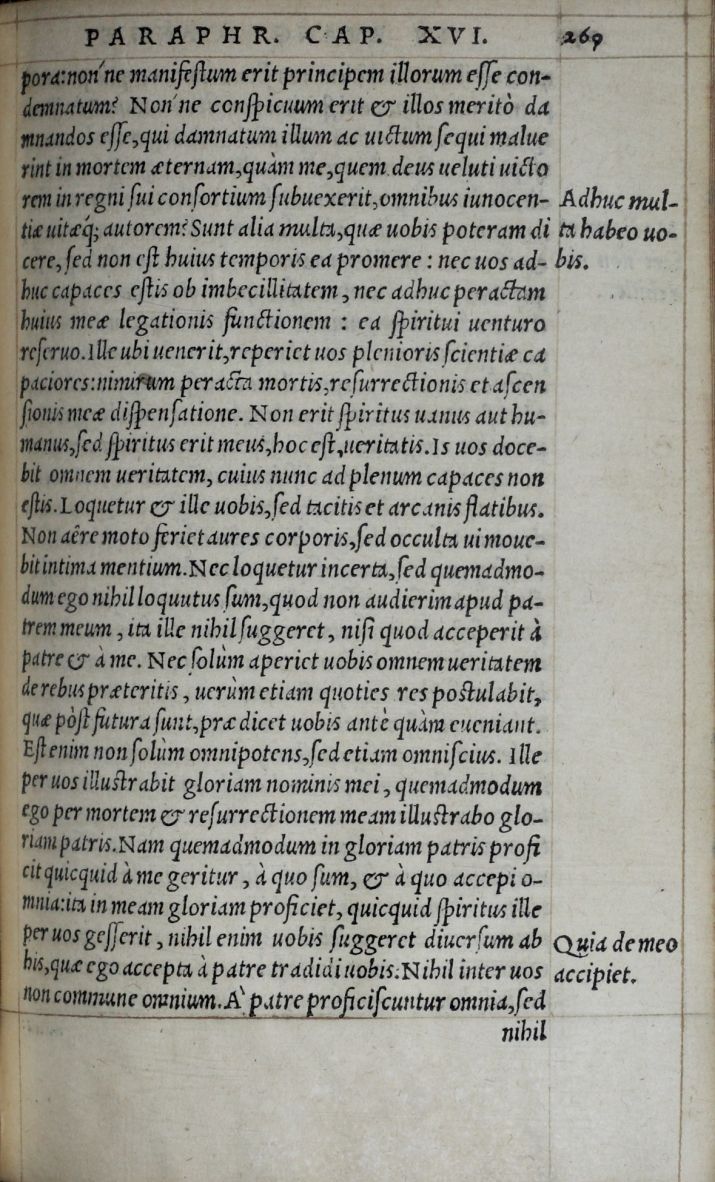 PARAPHR. CAP. XVI. 269
pora: non'ne manifestum erit principem illorum esse con-
demnatum? Non'ne conspicuum erit & illos meritò da
mnandos esse, qui damnatum illum ac uictum sequi malue
rint in mortem æternam, quàm me, quem deus ueluti uicto
rem in regni sui consortium subuexerit, omnibus iunocen-
tiæ uitæq; autorem? Sunt alia multa, quæ uobis poteram di
cere, sed non est huius temporis ea promere : nec uos ad-
huc capaces estis ob imbecillitatem, nec adhuc peractam
huius meæ legationis functionem : ea spiritui uenturo
reseruo. Ille ubi uenerit, reperiet uos plenioris scientiæ ca
paciores: nimirum peracta mortis, resurrectionis et ascen
sionis meæ dispensatione. Non erit spiritus uanus aut hu-
manus, sed spiritus erit meus, hoc est, ueritatis. Is uos doce-
bit omnem ueritatem, cuius nunc ad plenum capaces non
estis. Loquetur & ille uobis, sed tacitis et arcanis flatibus.
Non aëre moto feriet aures corporis, sed occulta ui moue-
bit intima mentium. Nec loquetur incerta, sed quemadmo-
dum ego nihil loquutus sum, quod non audierim apud pa-
trem meum, ita ille nihil suggeret, nisi quod acceperit à
patre & à me. Nec solùm aperiet uobis omnem ueritatem
de rebus præteritis, uerùm etiam quoties res postulabit,
quæ pòst futura sunt, prædicet uobis antè quàm eueniant.
Est enim non solùm omnipotens, sed etiam omniscius. Ille
per uos illustrabit gloriam nominis mei, quemadmodum
ego per mortem & resurrectionem meam illustrabo glo-
riam patris. Nam quemadmodum in gloriam patris profi
cit quicquid à me geritur, à quo sum, & à quo accepi o-
mnia: ita in meam gloriam proficiet, quicquid spiritus ille
per uos gesserit, nihil enim uobis suggeret diuersum ab
his, quæ ego accepta à patre tradidi uobis. Nihil inter uos
non commune omnium. A` patre proficiscuntur omnia, sed
nihil
Adhuc mul-
ta habeo uo-
bis.
Quia de meo
accipiet.